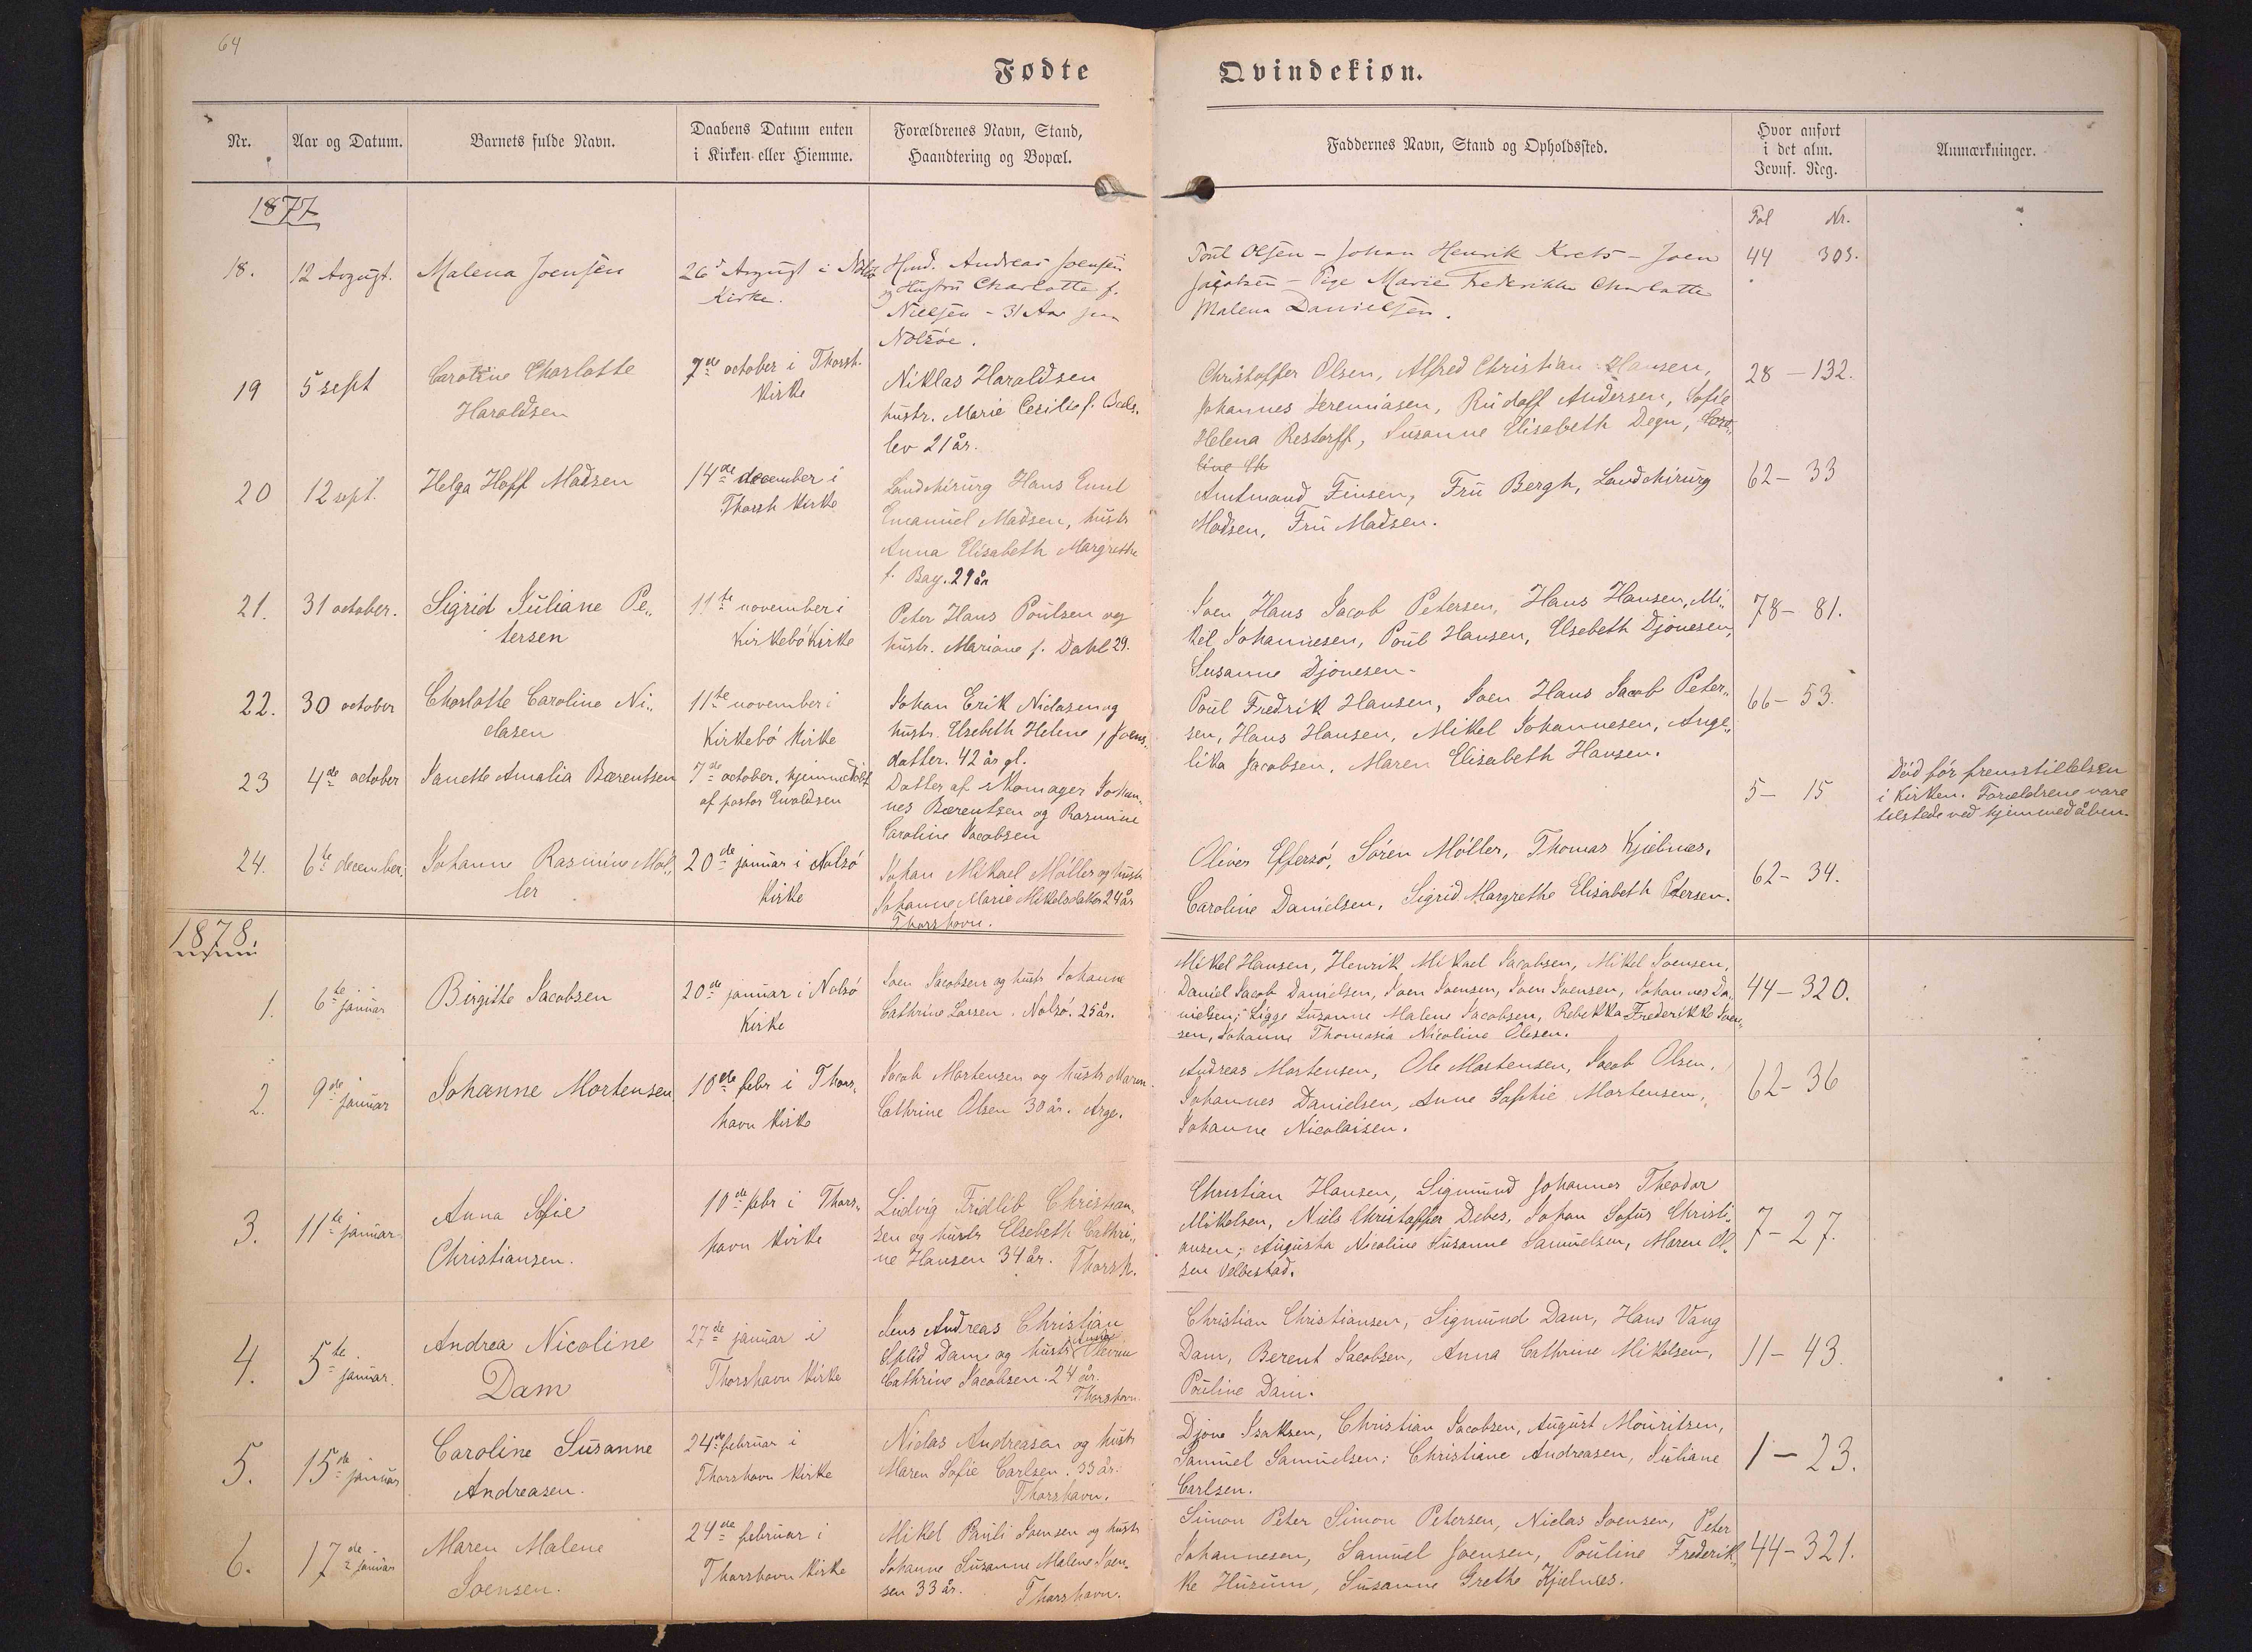 64
Fødte
Qvindekiøn.
Nr.
Aar og Datum.
Barnets fulde Navn.
Daabens Datum enten
i Kirken eller Hiemme.
Forældrenes Navn, Stand,
Haandtering og Bopæl.
Faddernes Navn, Stand og Opholdssted.
Hvor anført
i det alm.
Jevnf. Reg.
Anmærkninger.
1877
Fol Nr.
18.
12 August.
Malena Joensen
26 August i Nolsø
Kirke.
Andreas Joensen
Hustru Charlotte f.
Nielsen - 31 Aar
Nolsöe.
Poul Olsen - Johan Henrik Krets - Joen
Jacobsen - Pige Marie Frederikke Charlotte
Malena Danielsen.
44 303.
19
5 sept
Caroline Charlotte
Haraldsen
7de october i Thorsh.
Kirke
Niklas Haraldsen
hustr. Marie Cecilie f.
lev 21 år.
Christoffer Olsen, Alfred Christian Hansen,
Johannes Jeremiasen, Rudolf Andersen, Sofie
Helena Restorff, Susanne Elisabeth Degn, Caro„
line Ch
28 - 132.
20
12 sept.
Helga Hoff Madsen
14de december i
Thorsh Kirke
Landchirurg Hans Emil
Emanuel Madsen, hustr
Anna Elisabeth Margrethe
f. Bay. 29 år
Amtmand Finsen, Fru Bergh, Landchirurg
Madsen, Fru Madsen.
62 - 33
21.
31 october.
Sigrid Juliane Pe„
tersen
11te november i
Kirkebö Kirke
Peter Hans Poulsen og
hustr. Mariane f. Dahl 29.
Joen Hans Jacob Petersen, Hans Hansen, Mi„
kel Johannesen, Poul Hansen, Elsebeth Djonesen,
Susanne Djonesen.
78 - 81.
22.
30 october
Charlotte Caroline Ni„
clasen
11te november i
Kirkebö Kirke
Johan Erik Niclasen og
hustr. Elsebeth Helene f Joens„
datter. 42 år gl.
Poul Fredrik Hansen, Joen Hans Jacob Peter„
sen, Hans Hansen, Mikel Johannesen, Ange„
lika Jacobsen, Maren Elisabeth Hansen.
66 - 53.
23
4de october
Janette Amalia Bærentsen
7de october, hjemmedöbt
af pastor Evaldsen
Datter af Skomager Johan„
nes Bærentsen og Rasmine
Caroline Jacobsen
5 - 15
Död för fremstillelsen
i Kirken. Forældrene vare
tilstede ved hjemmedåben.
24.
6te december.
Johanne Rasmine Möl„
ler
20de januar i Nolsö
Kirke
Johan Mikael Möller og hustr
Johanne Marie Mikelsdatter 24 år
Thorshavn.
Oliver Effersö, Sören Möller, Thomas Kjælnæs,
Caroline Danielsen, Sigrid Margrethe Elisabeth Petersen.
62 - 34.
1878.
1.
6te januar
Birgitte Jacobsen
20de januar i Nolsö
Kirke
Joen Jacobsen og hustr Johanne
Cathrine Larsen. Nolsö. 25 år.
Mikel Hansen, Henrik Mikael Jacobsen, Mikel Joensen,
Daniel Jacob Danielsen, Joen Joensen, Joen Joensen, Johannes Da„
nielsen; Sigge Susanne Malene Jacobsen, Rebekka Frederikke Joen„
sen, Johanne Thomasia Nicoline Olesen.
44 - 320.
2.
9de januar
Johanne Mortensen
10de febr i Thors„
havn Kirke
Jacob Mortensen og hustr Maren
Cathrine Olsen 30 år. Arge.
Andreas Mortensen, Ole Mortensen, Jacob Olsen,
Johannes Danielsen, Anne Sophie Mortensen,
Johanne Nicolaisen.
62 - 36
3.
11te januar
Anna Sofie
Christiansen.
10de febr i Thors„
havn Kirke
Ludvig Fridlib Christian„
sen og hustr Elsebeth Cathri„
ne Hansen 34 år. Thorsh.
Christian Hansen, Sigmund Johannes Theodor
Mikelsen, Niels Christoffer Debes, Johan Sofus Christi„
ansen; Augusta Nicoline Susanne Samuelsen, Maren Ol„
sen Velbestad.
7 - 27.
4.
5te januar.
Andrea Nicoline
Dam
27de januar i
Thorshavn Kirke
Jens Andreas Christian
Dam og hustr Anna
Cathrine Jacobsen. 24 år.
Thorshavn.
Christian Christiansen, Sigmund Dam, Hans Vang
Dam, Berent Jacobsen, Anna Cathrine Mikelsen,
Pouline Dam.
11 - 43.
5.
15de januar
Caroline Susanne
Andreasen.
24de februar i
Thorshavn Kirke
Niclas Andreasen og hustr
Maren Sofie Carlsen. 33 år.
Thorshavn.
Djone Isaksen, Christian Jacobsen, August Mouritsen,
Samuel Samuelsen; Christiane Andreasen, Juliane
Carlsen.
1 - 23.
6.
17de januar
Maren Malene
Joensen.
24de februar i
Thorshavn Kirke
Mikel Pauli Joensen og hustr
Johanne Susanne Malene Joen„
sen 33 år. Thorshavn.
Simon Peter Simon Petersen, Niclas Joensen, Peter
Johannesen, Samuel Joensen, Pouline Frederik„
ke Husum, Susanne Grethe Kjælnes.
44 - 321.